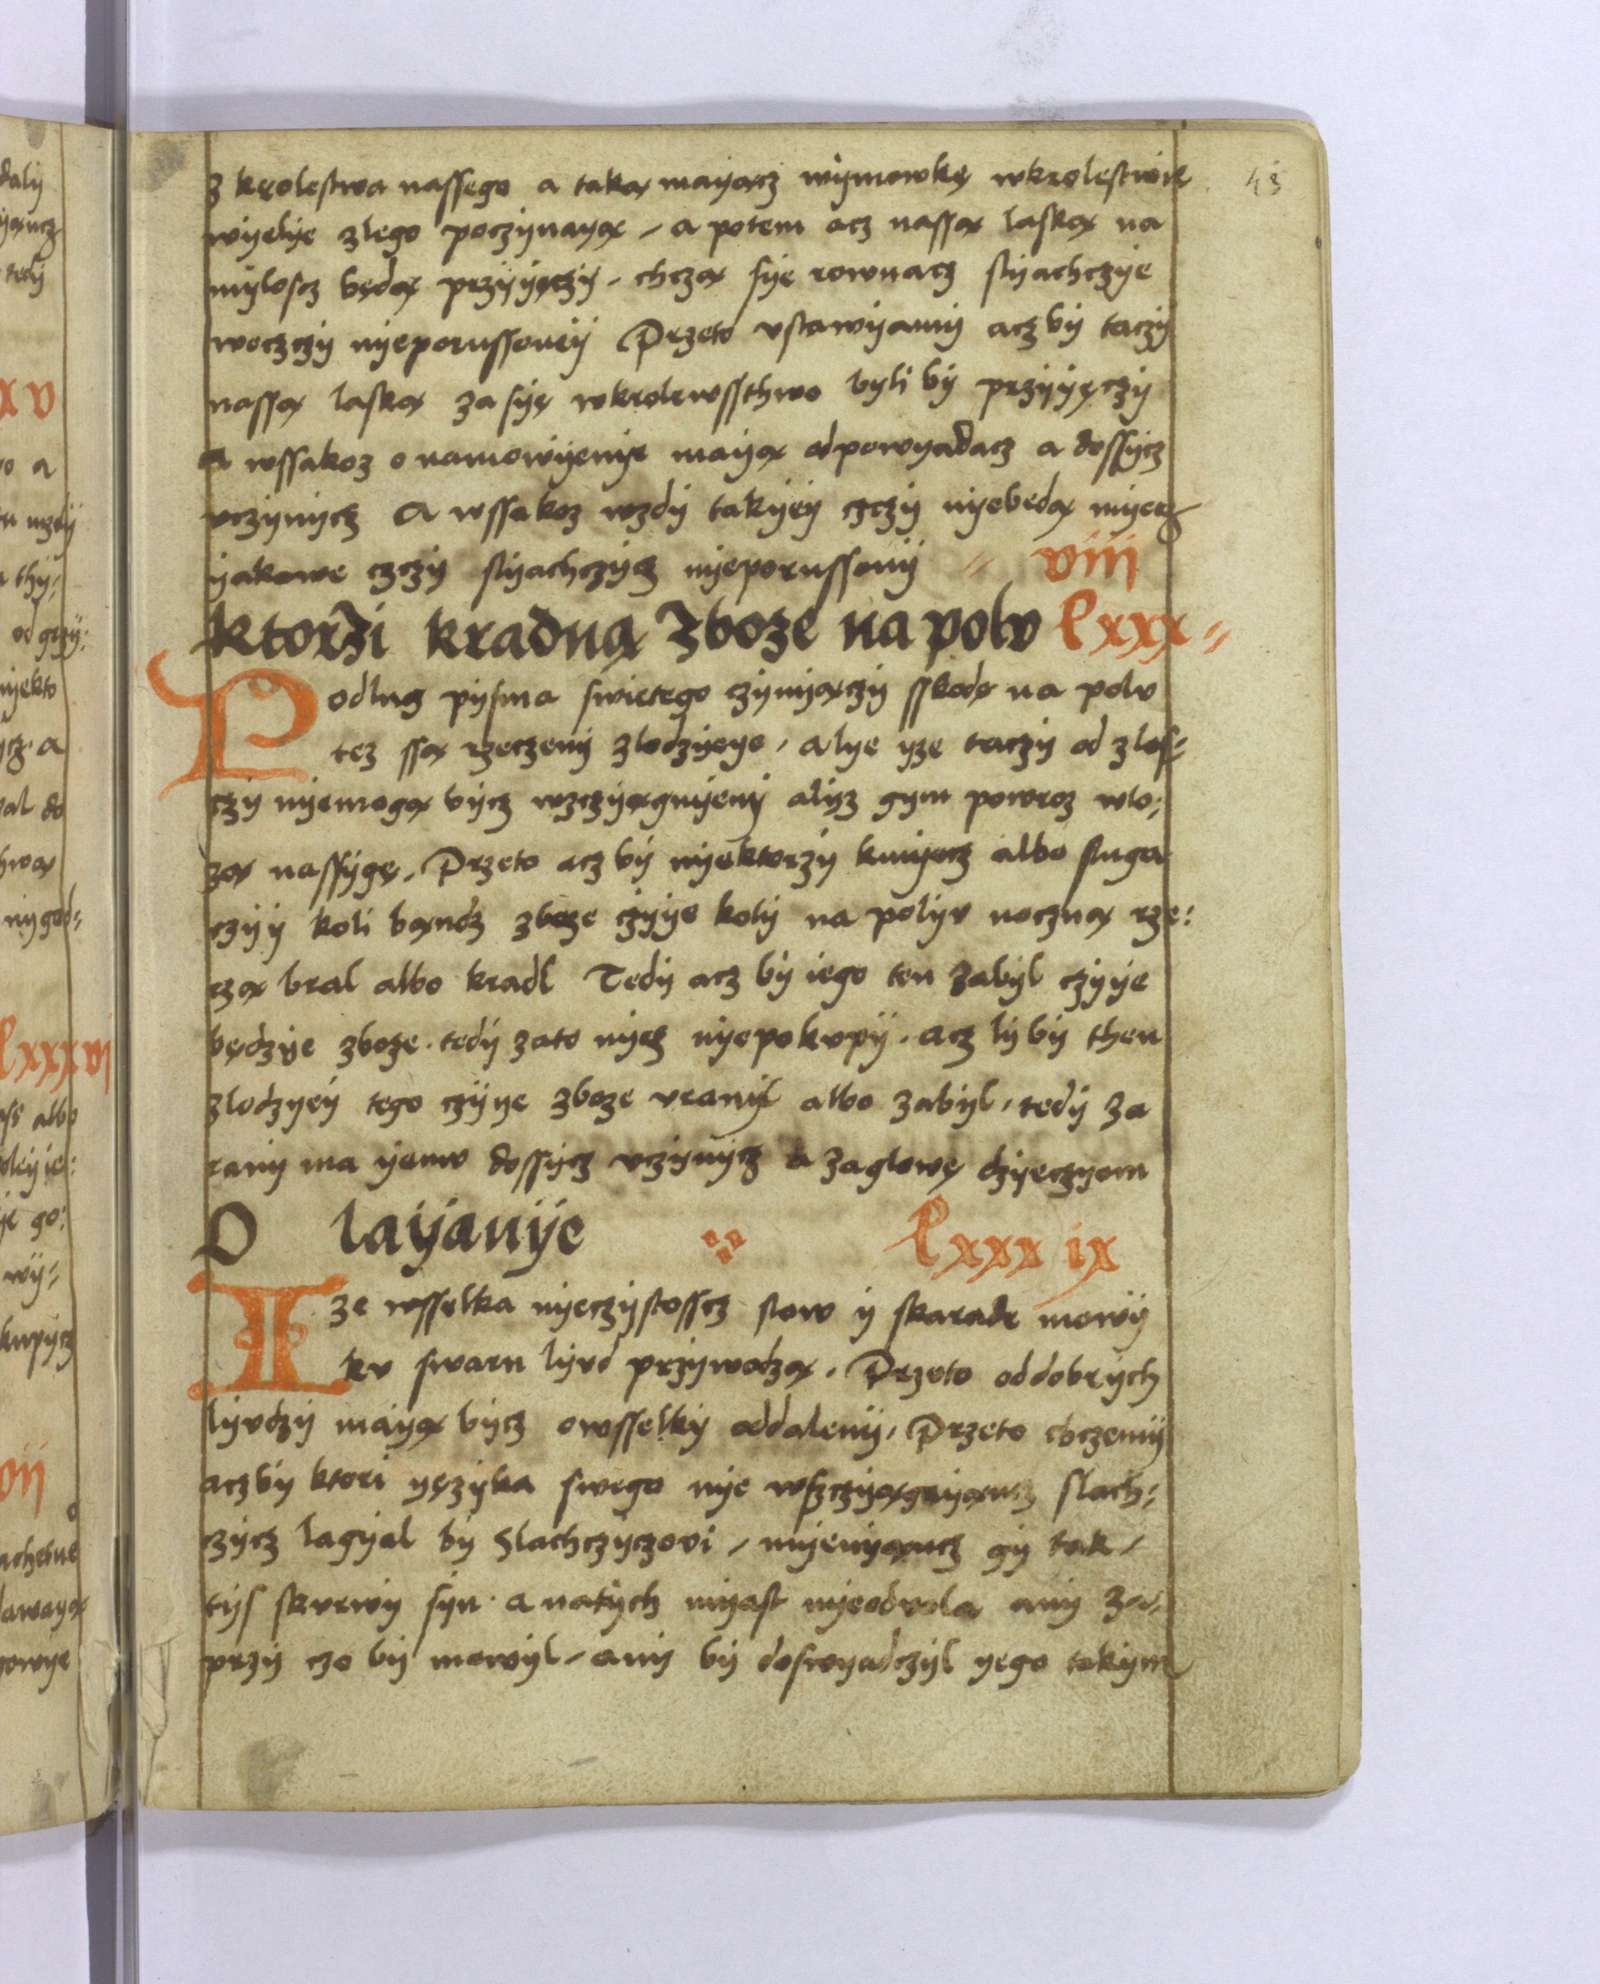 z krolestwa nassego a taką mayącz wymowkę wkrolestwie 43
wyelye zlego poczynayą / a potem acz nassą laską na
myloscz będą przyyęczy . chczą sye rownacz slyachczye
woczczy nyeporussoney Przeto vstawyamy acz by taczy
nassą laską zasyę wkrolewssthwo byli by przyyęczy
A wssakoz o namowyenye mayą odpowyadacz a dossycz
vczynycz A wssakoz wzdy takyey czczy nyebedą myecz
yakowe czczy slyachczycz nyeporussony // viii
ktorzi kradną zboze na polv lxxx //
Podlug pysma swietego czynyączy sskodę na polv
tez ssą rzeczeny zlodzyeye / alye yze taczy od zlos=
czy nyemogą bycz wzczyągnyeny alysz gym powroz wlo:
żą nassygę . Przeto acz by nyektorzy kmyecz albo sluga
czyy koli bąndz zboze czyye koly na polyv noczną rze:
czą bral albo kradl Tedy acz by iego ten zabyl czyye
będzye zboze . tedy zato nycz nyepokvpy . acz ly by then
zlodzyey tego czyye zboze vranyl albo zabyl / tedy za
rany ma yemv dossycz vczynycz a zaglowę dzyeczyom
O layanye lxxx ix
Ize wsselka nyeczystosscz slow y skarade mowy
kv swaru lyvd przywodzą . Przeto od dobrych
lyvdzy mayą bycz owsselky oddaleny . Przeto chczemy
aczby ktori yęzyka swego nye wsczyągnyąncz slach=
czycz lagyal by Slachczyczovi / myenyąncz gy tak /
tys skvrwy syn . a natych myast nyeodvola any za=
przy czo by mowyl / any by doswyadczyl yego takym